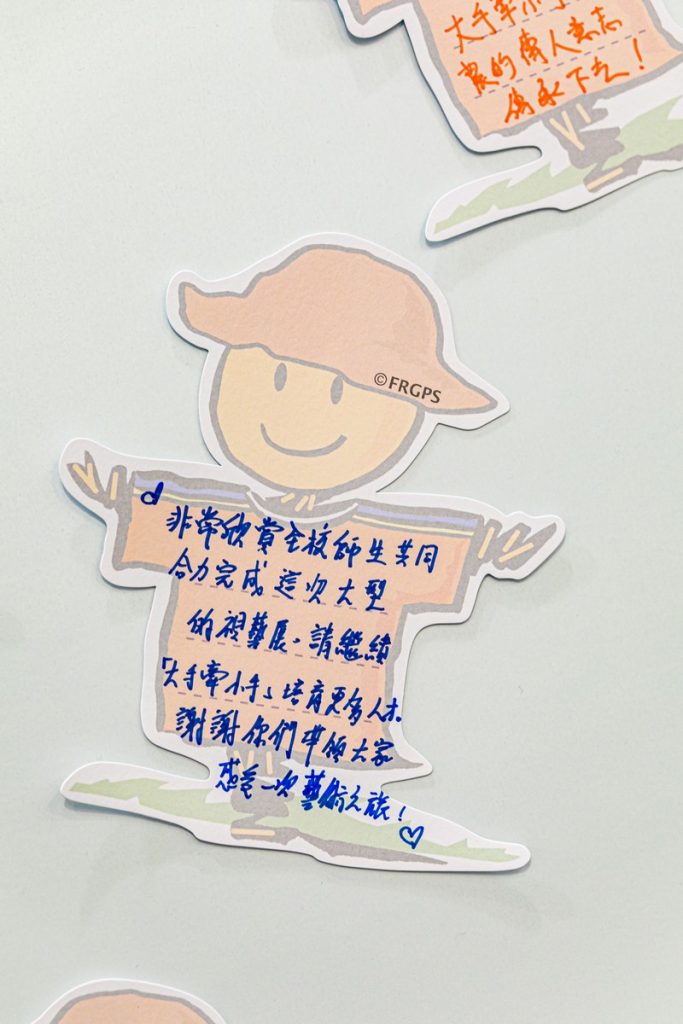 大手牽小手
農的齊人意志
傳承下去!
©FRGPS
非常欣賞全校師生共同
合力完成這次大型
的視藝展。請繼續
「大手牽小手」培育更多人才。
謝謝你們帶領大家
感受一次藝術之旅!